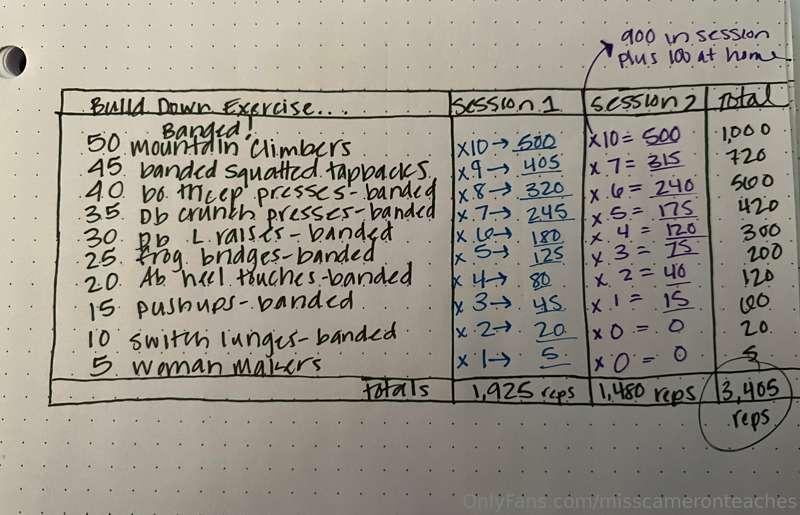 900 in session
plus 100 at home
Build Down Exercise... Session 1 Session 2 Total
Banged!
50 mountain climbers x10→ 500 x10= 500 1,000
45 banded squatted tapbacks x9→ 405 x7= 315 720
40 tricep presses-banded x8→ 320 x6= 240 560
35 Db crunch presses-banded x7→ 245 x5= 175 420
30 Db L raises-banded x6→ 180 x4= 120 300
25 frog bridges-banded x5→ 125 x3= 75 200
20 Ab heel touches-banded x4→ 80 x2= 40 120
15 pushups-banded x3→ 45 x1= 15 60
10 switch lunges-banded x2→ 20 x0= 0 20
5 woman makers x1→ 5 x0= 0 5
totals 1,925 reps 1,480 reps 3,405
reps
OnlyFans.com/misscameronteaches